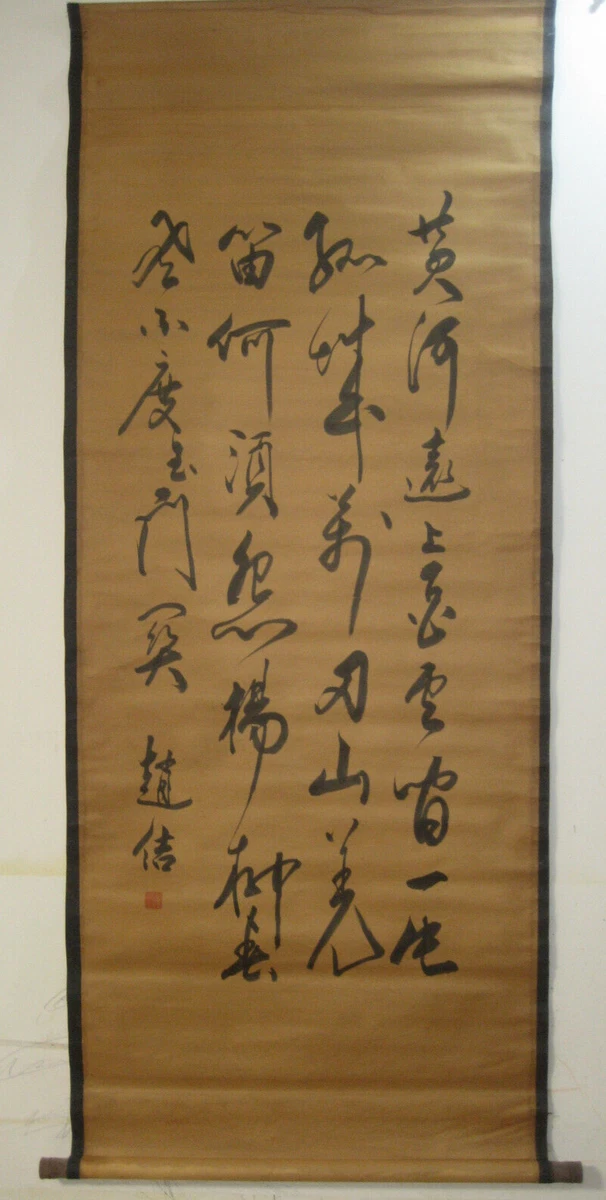 黄河遠上白雲間一片
孤城萬刃山羌
笛何須怨楊柳春
風不度玉門関
趙佶